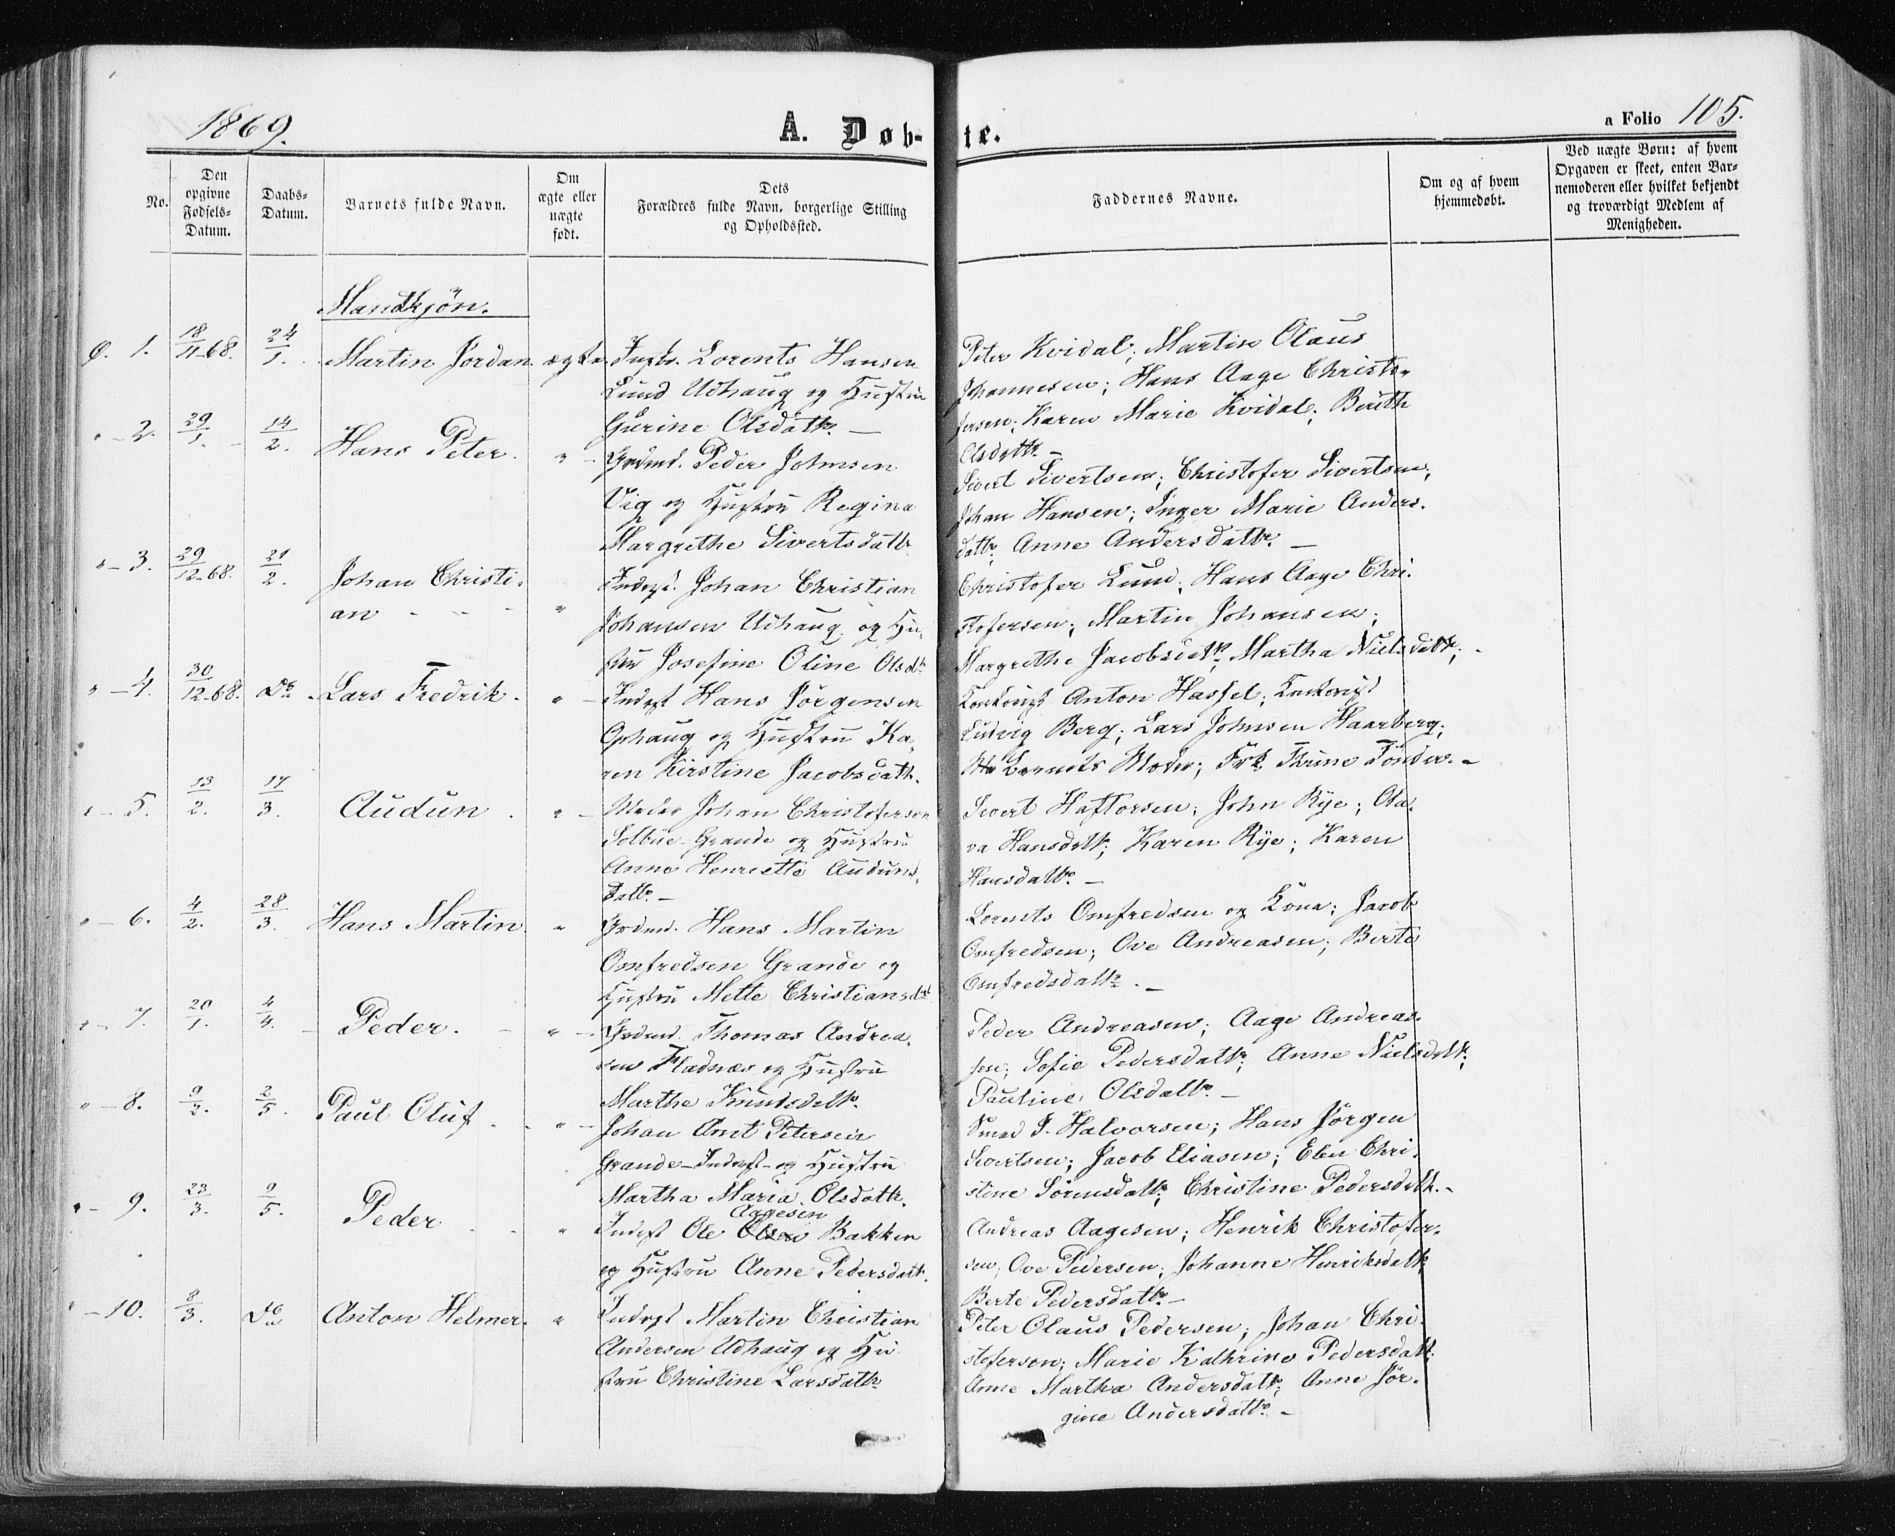 1869.
A. Døb-
te.
a Folio 105.
No.
Den
opgivne
Fødsels-
Datum.
Daabs-
Datum.
Barnets fulde Navn.
Om
ægte eller
uægte
født.
Dets
Forældres fulde Navn, borgerlige Stilling
og Opholdssted.
Faddernes Navne.
Om og af hvem
hjemmedøbt.
Ved uægte Børn: af hvem
Opgaven er skeet, enten Bar-
nemoderen eller hvilket bekjendt
og troværdigt Medlem af
Menigheden.
Mandkjön.
1. 18/11-68. 24/1. Martin Jördan. ægte.
Lorents Hansen
Lund Udhaug og Hustru
Gurine Olsdattr. —
Peter Kvidal; Martin Olaus
Johannesen; Hans Aage Christo-
fersen; Karen Marie Kvidal; Berith
Olsdattr —
" - 2. 29/1. 14/2. Hans Peter. "
Grdmd. Peder Johnsen
Vig og Hustru Regina
Margrethe Sivertsdattr
Sivert Sivertsen; Christofer Sivertsen;
Johan Hansen; Inger Marie Anders-
dattr. Anne Andersdattr. —
" - 3. 29/12-68. 21/2. Johan Christi-
an "
Inderst. Johan Christian
Johansen Udhaug og Hu-
stru Josefine Oline Olsdt
Christofer Lund; Hans Aage Chri-
stofersen; Martin Johansen;
Margrethe Jacobsdtr; Martha Nielsdtr; -
" - 4. 30/12-68. Do. Lars Fredrik. "
Inderst Hans Jørgensen
Ophaug og Hustru Ka-
ren Kirstine Jacobsdattr.
Anton Hassel;
Ludvig Berg; Lars Johnsen Haarberg;
Barnets Moder; Frk. Thrine Tönder. -
" - 5. 13/2. 17/3. Audun. "
Johan Christofersen
Solbue-Grande og Hustru
Anne Henriette Auduns-
dattr. —
Sivert Haftorsen; John Rye; Ola-
va Hansdatt; Karen Rye; Karen
Hansdattr. —
" - 6. 4/2. 28/3. Hans Martin. "
Grdmd. Hans Martin
Omfredsen Grande og
Hustru Mette Christiansdtr
Lorents Omfredsen og Kona; Jacob
Omfredsen; Ove Andreasen; Berte
Omfredsdattr. —
" - 7. 20/1. 4/4. Peder. "
Grdmd. Thomas Andrea-
sen Fladnæs og Hustru
Marthe Knutsdattr.
Peder Andreasen; Aage Andreas-
sen; Sofie Pedersdattr; Anne Nielsdattr;
Pauline Olsdattr. —
" - 8. 9/3. 2/5. Paul Oluf. "
Johan Arnt Petersen
Grande - Inderst - og Hustru
Martha Maria Olsdattr.
Smed J. Halvorsen; Hans Jørgen
Sivertsen; Jacob Eliasen; Elen Chri-
stine Sörensdattr; Christine Pedersdattr. -
" - 9. 23/3. 9/5. Peder "
Aagesen
Inderst Ole Olsen Bakken
og Hustru Anne Pedersdatt.
Andreas Aagesen; Henrik Christofer-
sen; Ove Pedersen; Johanne Henriksdattr
Berte Pedersdattr —
" - 10. 8/3. Do Anton Helmer. "
Inderst Martin Christian
Andersen Udhaug og Hu-
stru Christine Larsdattr
Peter Olaus Pedersen; Johan Chri-
stofersen; Marie Kathrine Pedersdatt.
Anne Martha Andersdattr; Anne Jör-
gine Andersdattr. —